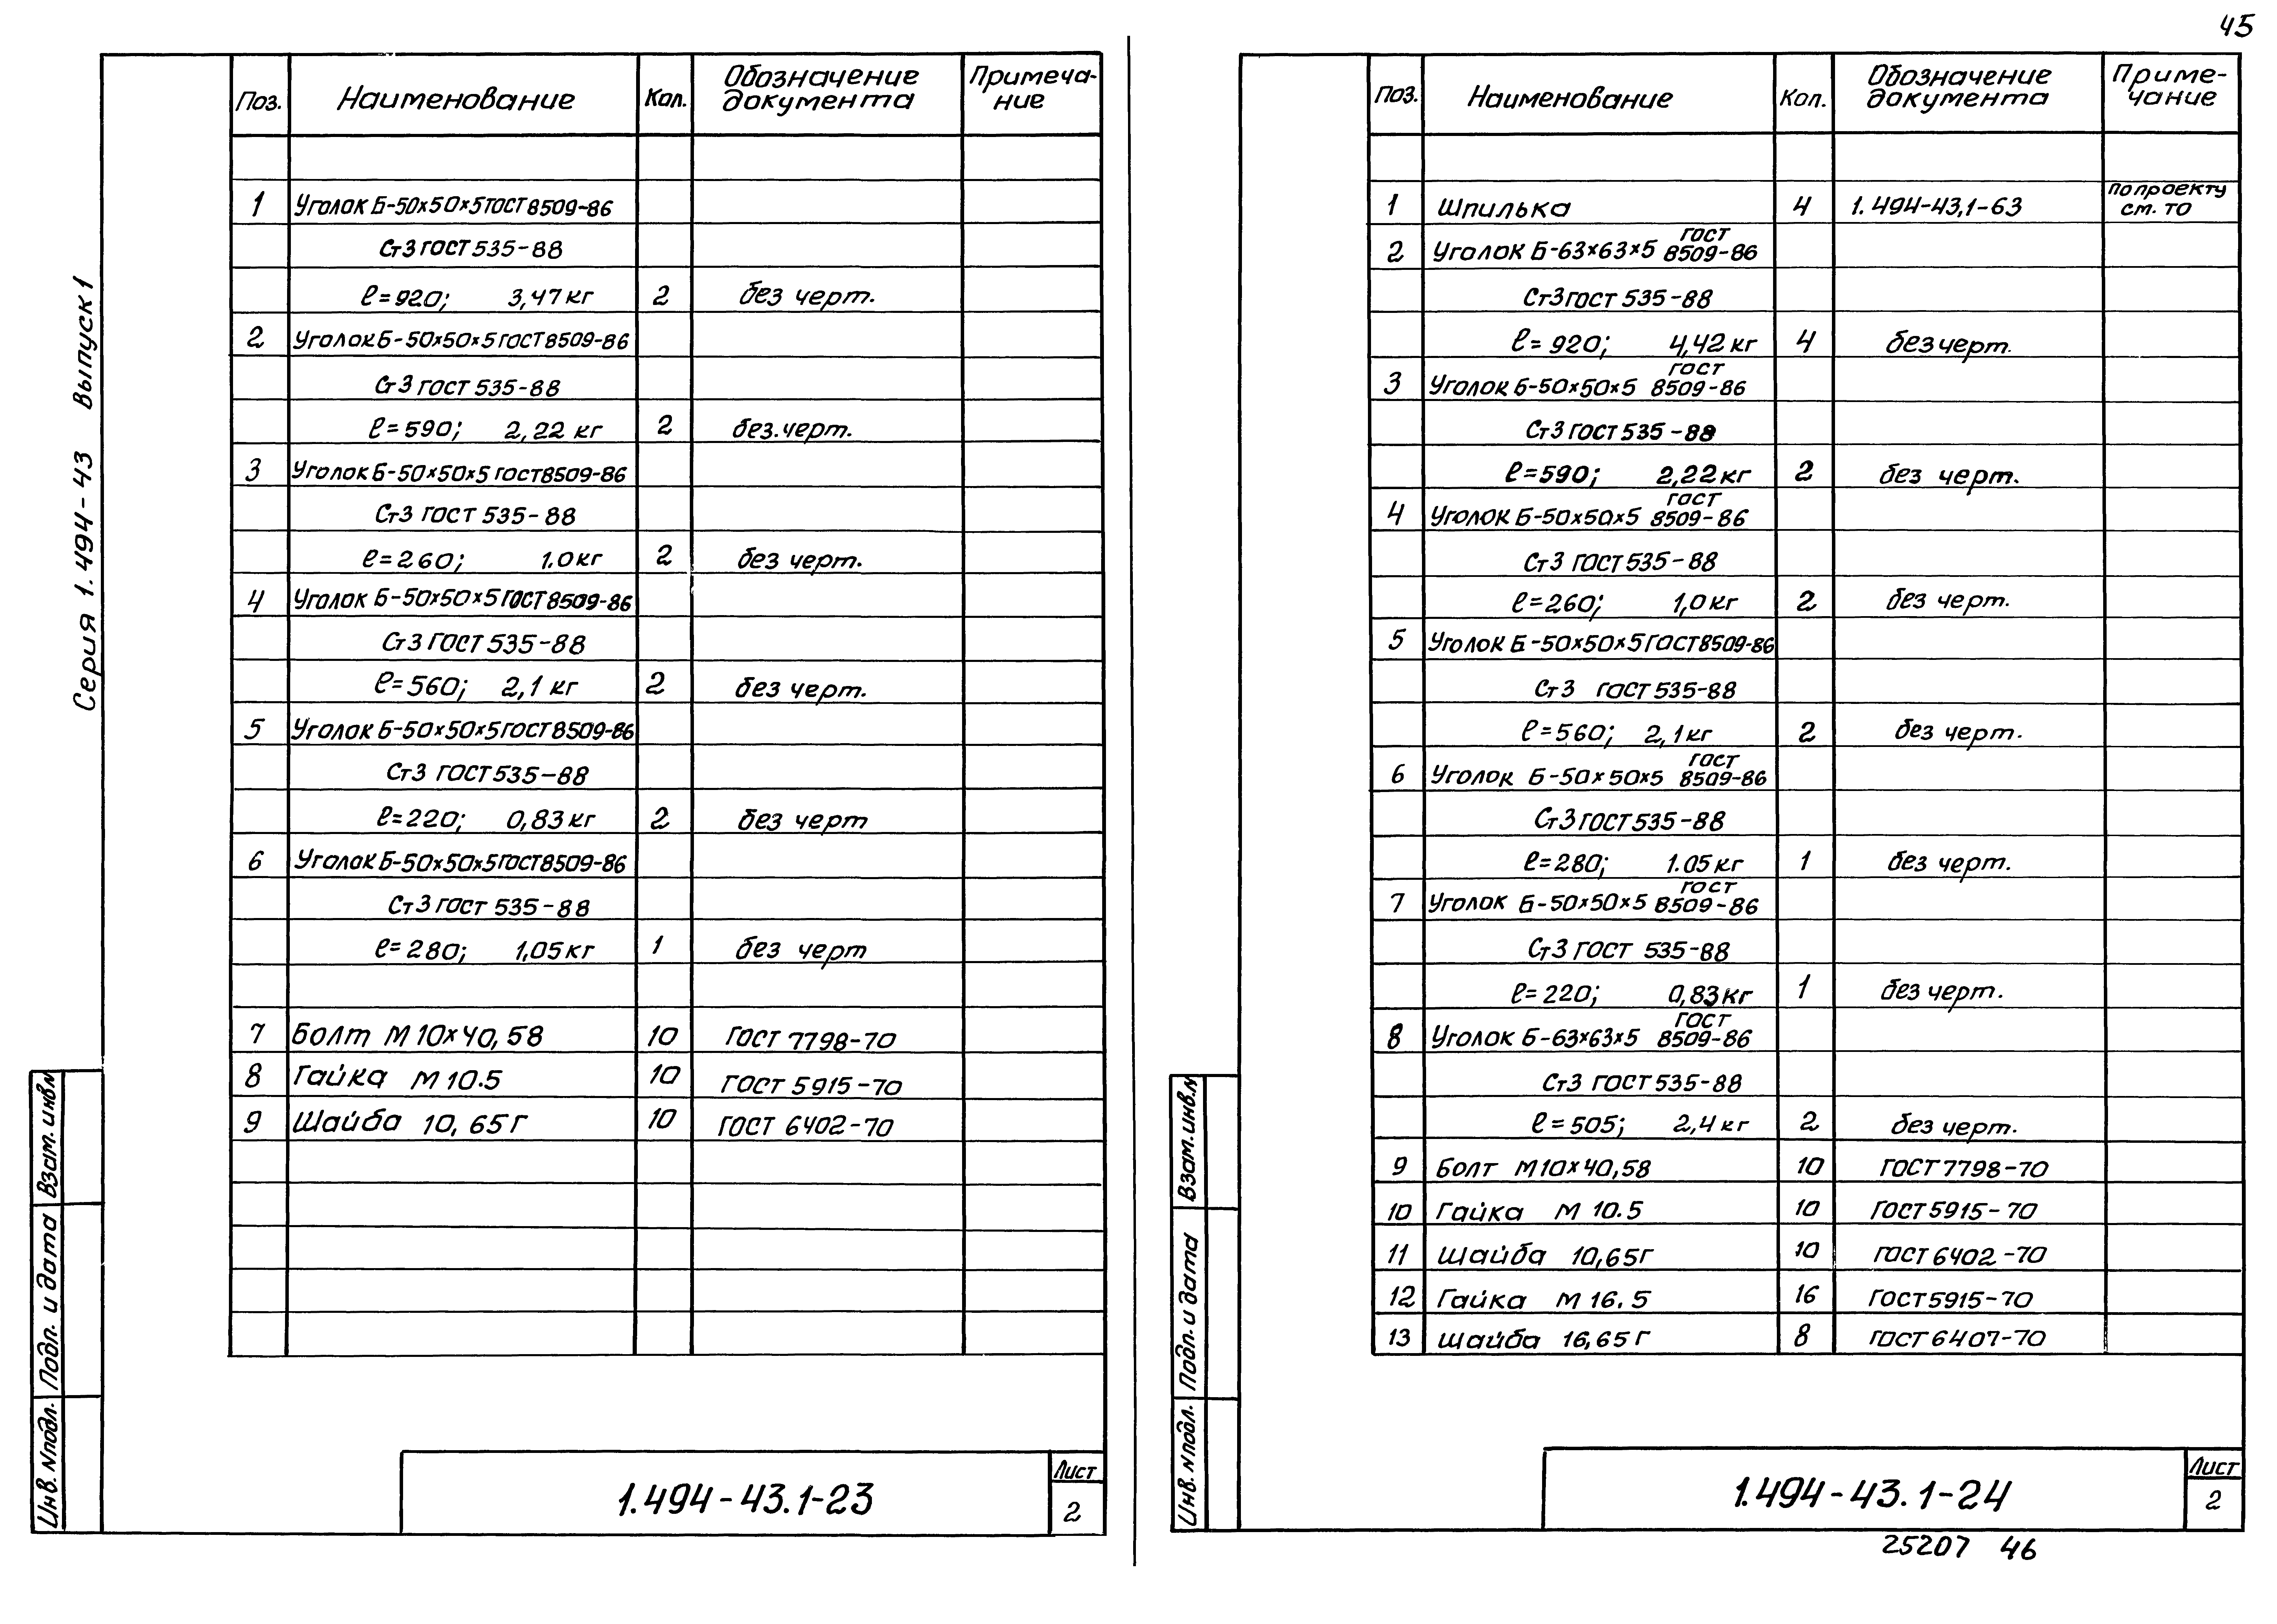 45
Серия 1.494-43 Выпуск 1
Поз. Наименование Кол. Обозначение документа Примеча-ние
1 Уголок Б-50×50×5 ГОСТ 8509-86
Ст3 ГОСТ 535-88
ℓ=920; 3,47 кг 2 без черт.
2 Уголок Б-50×50×5 ГОСТ 8509-86
Ст3 ГОСТ 535-88
ℓ=590; 2,22 кг 2 без.черт.
3 Уголок Б-50×50×5 ГОСТ 8509-86
Ст3 ГОСТ 535-88
ℓ=260; 1.0 кг 2 без черт.
4 Уголок Б-50×50×5 ГОСТ 8509-86
Ст3 ГОСТ 535-88
ℓ=560; 2,1 кг 2 без черт.
5 Уголок Б-50×50×5 ГОСТ 8509-86
Ст3 ГОСТ 535-88
ℓ=220; 0,83 кг 2 без черт
6 Уголок Б-50×50×5 ГОСТ 8509-86
Ст3 ГОСТ 535-88
ℓ=280; 1,05 кг 1 без черт
7 Болт М 10×40,58 10 ГОСТ 7798-70
8 Гайка М 10.5 10 ГОСТ 5915-70
9 Шайба 10, 65Г 10 ГОСТ 6402-70
Инв. N подл. Подл. и дата Взам. инв.N
1.494-43.1-23
Лист
2
Поз. Наименование Кол. Обозначение документа Приме-чание
1 Шпилька 4 1.494-43,1-63 По проекту см. ТО
2 Уголок Б-63×63×5 ГОСТ 8509-86
Ст3 ГОСТ 535-88
ℓ=920; 4,42 кг 4 без черт.
3 Уголок Б-50×50×5 ГОСТ 8509-86
Ст3 ГОСТ 535-88
ℓ=590; 2,22 кг 2 без черт.
4 Уголок Б-50×50×5 ГОСТ 8509-86
Ст3 ГОСТ 535-88
ℓ=260; 1,0 кг 2 без черт.
5 Уголок Б-50×50×5 ГОСТ 8509-86
Ст3 ГОСТ 535-88
ℓ=560; 2,1 кг 2 без черт.
6 Уголок Б-50×50×5 ГОСТ 8509-86
Ст3 ГОСТ 535-88
ℓ=280; 1.05 кг 1 без черт.
7 Уголок Б-50×50×5 ГОСТ 8509-86
Ст3 ГОСТ 535-88
ℓ=220; 0,83 кг 1 без черт.
8 Уголок Б-63×63×5 ГОСТ 8509-86
Ст3 ГОСТ 535-88
ℓ=505; 2,4 кг 2 без черт.
9 Болт М10×40,58 10 ГОСТ 7798-70
10 Гайка М 10.5 10 ГОСТ 5915-70
11 Шайба 10,65Г 10 ГОСТ 6402-70
12 Гайка М 16.5 16 ГОСТ 5915-70
13 Шайба 16,65Г 8 ГОСТ 6407-70
Инв. N подл. Подл. и дата Взам. инв.N
1.494-43.1-24
Лист
2
25207 46